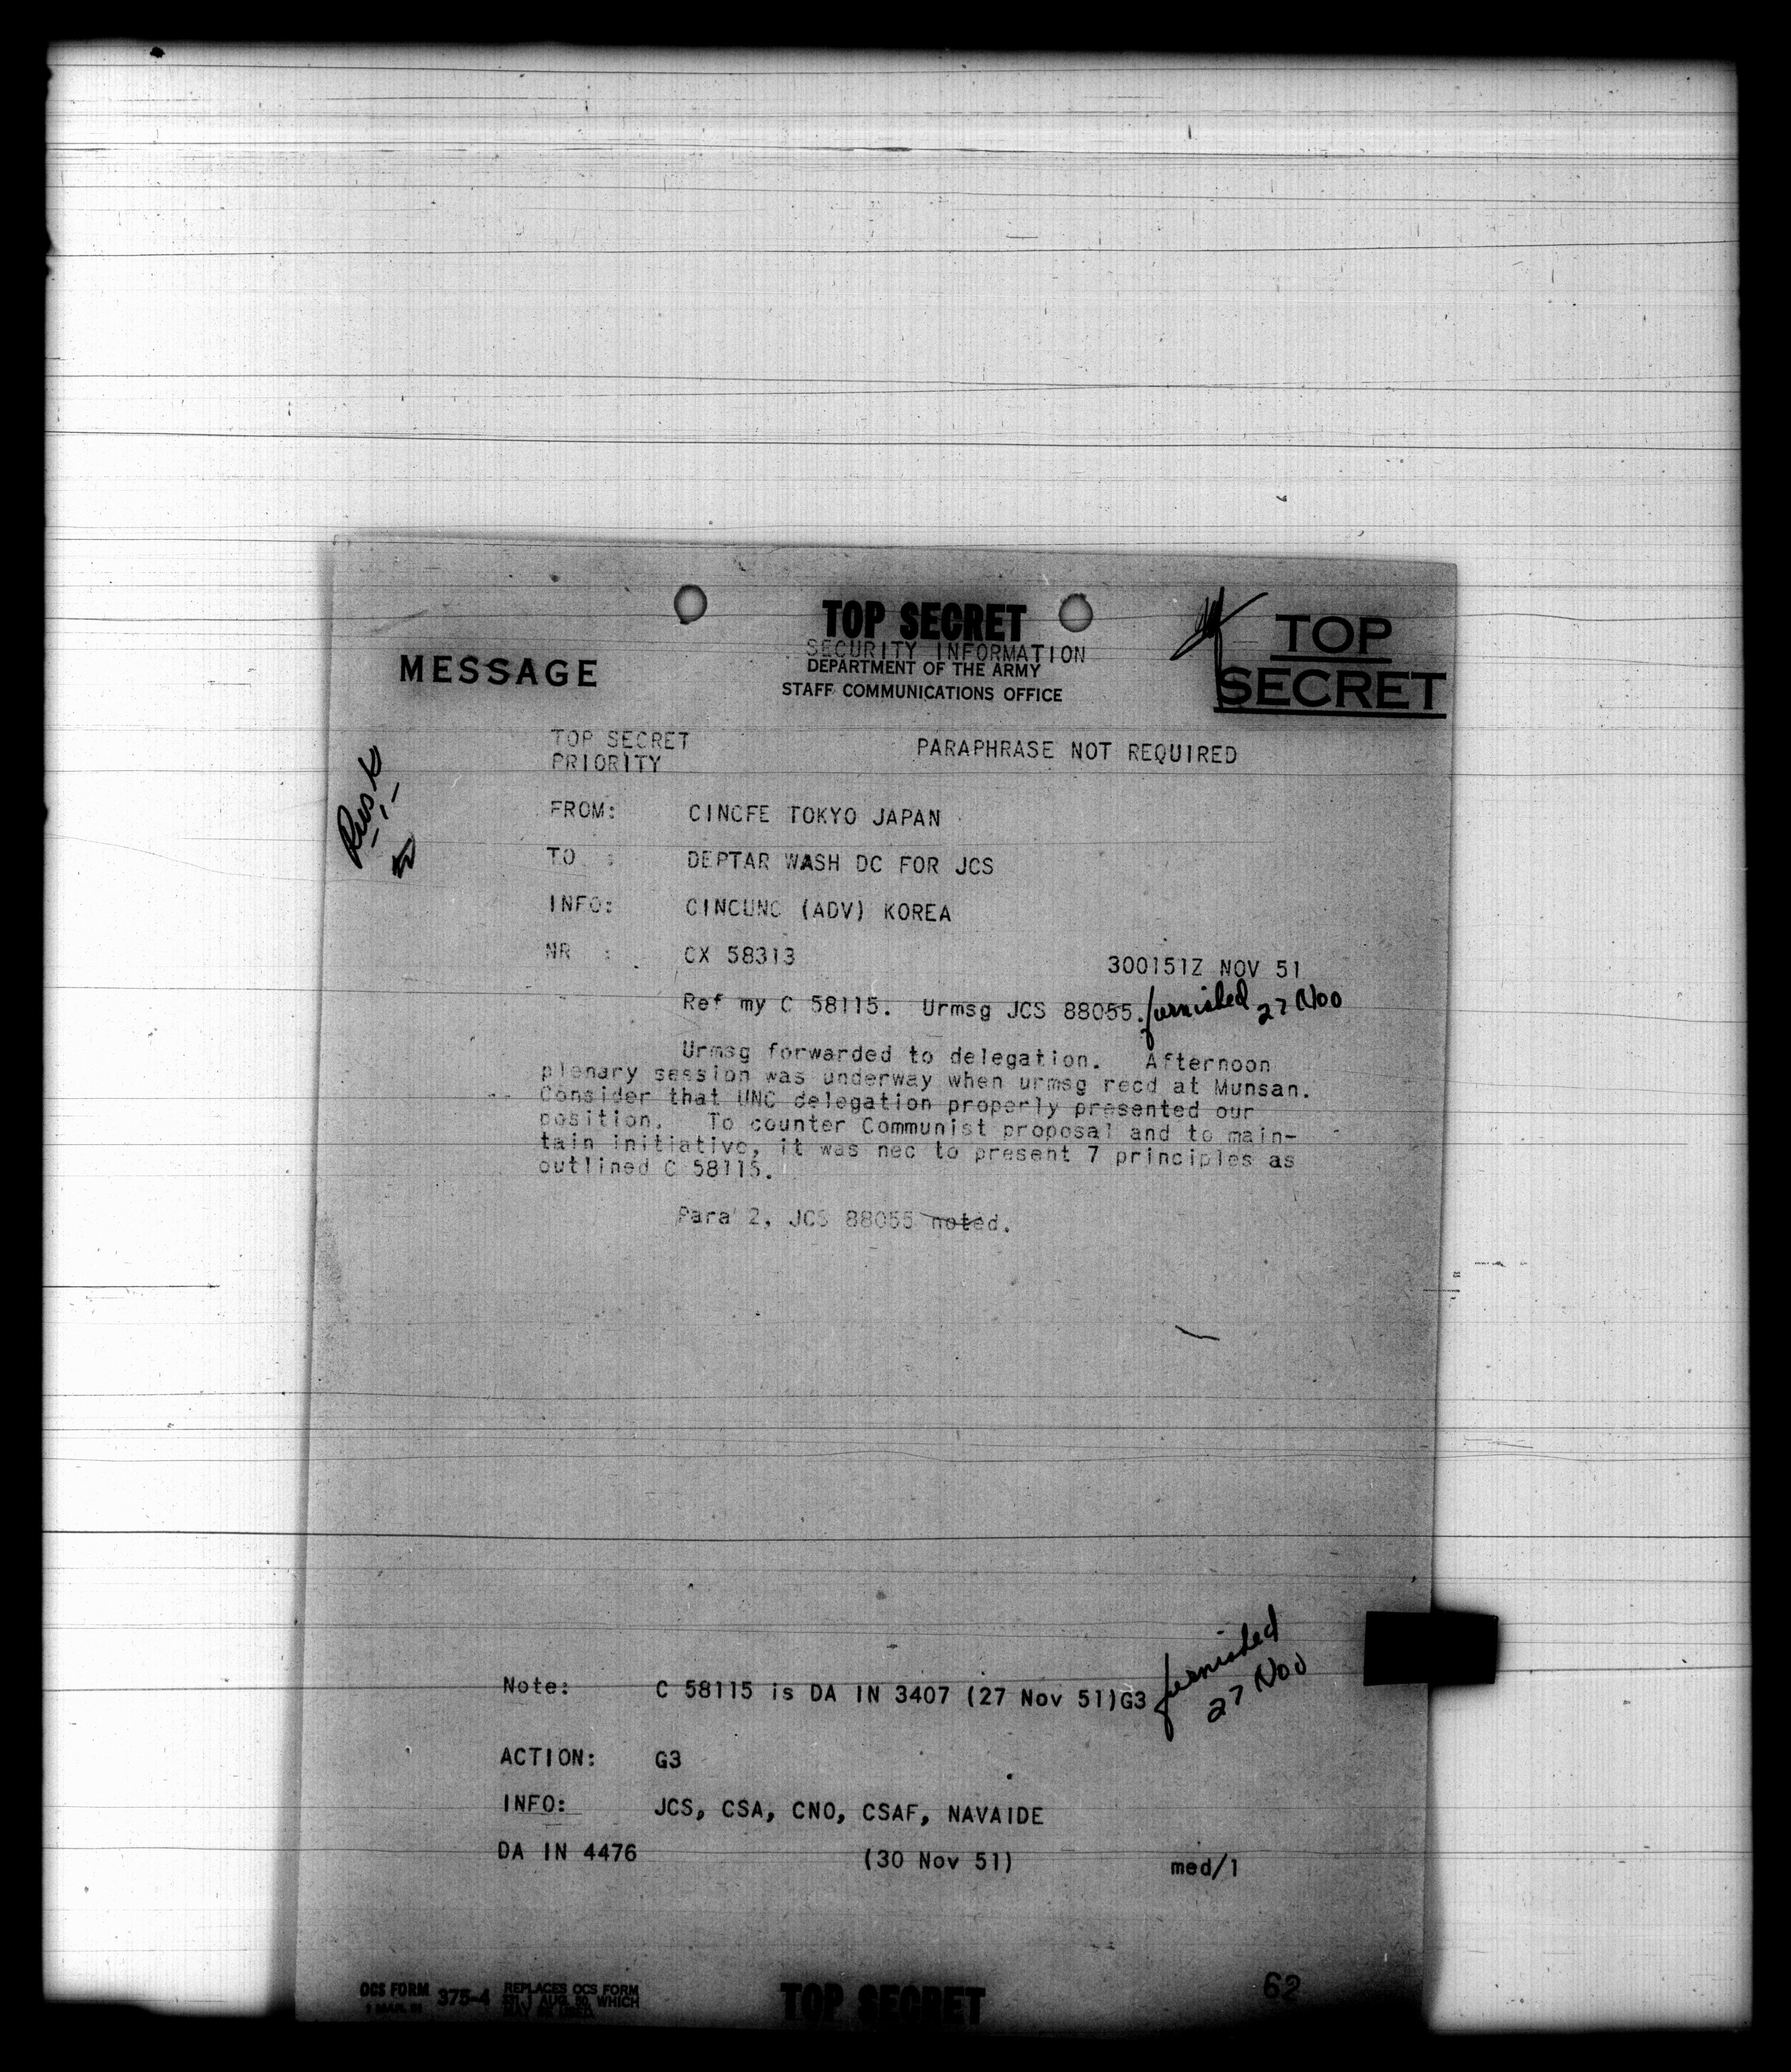 TOP SECRET
SECURITY INFORMATION
DEPARTMENT OF THE ARMY
STAFF COMMUNICATIONS OFFICE
MESSAGE
TOP
SECRET
Rusk
TOP SECRET
PRIORITY
PARAPHRASE NOT REQUIRED
FROM: CINCFE TOKYO JAPAN
TO : DEPTAR WASH DC FOR JCS
INFO: CINCUNC (ADV) KOREA
NR : CX 58313
300151Z NOV 51
Ref my C 58115. Urmsg JCS 88055. furnished 27 Nov
Urmsg forwarded to delegation. Afternoon
plenary session was underway when urmsg recd at Munsan.
Consider that UNC delegation properly presented our
position. To counter Communist proposal and to main-
tain initiative, it was nec to present 7 principles as
outlined C 58115.
Para 2, JCS 88055 noted.
Note: C 58115 is DA IN 3407 (27 Nov 51)G3 furnished
27 Nov
ACTION: G3
INFO: JCS, CSA, CNO, CSAF, NAVAIDE
DA IN 4476 (30 Nov 51) med/1
OCS FORM 375-4 REPLACES OCS FORM
1 AUG. 50, WHICH
TOP SECRET
62